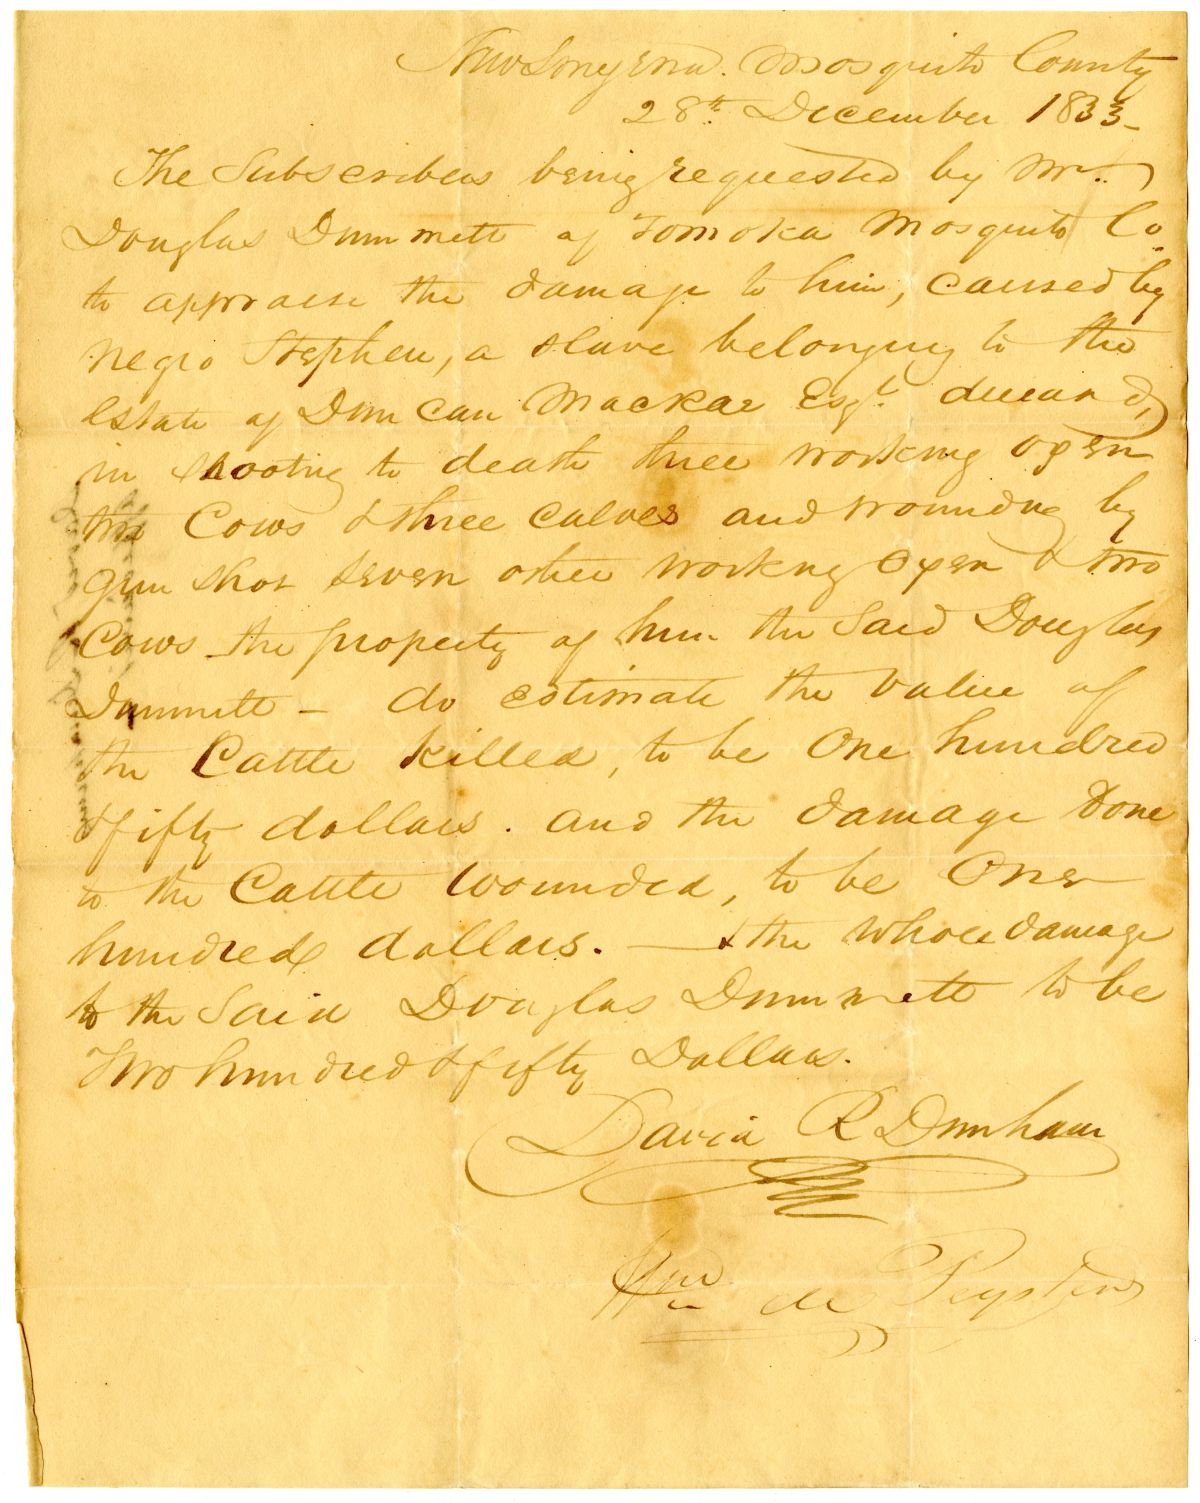 New Smyrna. Mosquito County
28th. December 1833-
The Subscribers being requested by Mr.
Douglas Dummett of Tomoka Mosquito Co.
to appraise the damage to him, caused by
negro Stephen, a slave belonging to the
Estate of Duncan Mackae Esqr. deceased,
in shooting to death three working oxen
two Cows & three calves and wounding by
gun shot seven other working oxen & two
Cows - the property of him the Said Douglas
Dummett - do estimate the value of
the Cattle killed, to be One hundred
& fifty dollars. and the damage done
to the Cattle wounded, to be One
hundred dollars. — & the whole damage
to the Said Douglas Dummett to be
Two hundred & fifty Dollars.
David R Dunham
Wm de Peyster